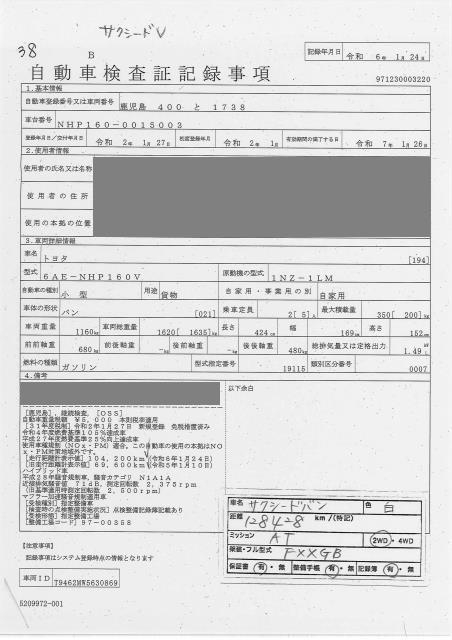 サクシードV
38
B
記録年月日 令和 6年 1月 24日
自動車検査証記録事項
971230003220
1.基本情報
自動車登録番号又は車両番号 鹿児島 400 と 1738
車台番号 NHP160-0015003
登録年月日/交付年月日 令和 2年 1月 27日 初度登録年月 令和 2年 1月 有効期間の満了する日 令和 7年 1月 26日
2.使用者情報
使用者の氏名又は名称
使用者の住所
使用の本拠の位置
3.車両詳細情報
車名 トヨタ [194]
型式 6AE-NHP160V 原動機の型式 1NZ-1LM
自動車の種別 小型 用途 貨物 自家用・事業用の別 自家用
車体の形状 バン [021] 乗車定員 2[ 5]人 最大積載量 350[ 200]kg
車両重量 1160kg 車両総重量 1620[ 1635]kg 長さ 424cm 幅 169cm 高さ 152cm
前前軸重 680kg 前後軸重 -kg 後前軸重 -kg 後後軸重 480kg 総排気量又は定格出力 1.49
燃料の種類 ガソリン 型式指定番号 19115 類別区分番号 0007
4.備考
以下余白
[鹿児島],継続検査,[OSS]
自動車重量税額 ¥5,000 本則税率適用
[31年度税制]令和2年1月27日 新規登録 免税検査済み
令和4年度燃費基準105%達成車
平成27年度燃費基準25%向上達成車
使用車種規制(NOx・PM)適合,この自動車の使用の本拠はNO
x・PM対策地域外です。
[走行距離計表示値]104,200km(令和6年1月24日)
[旧走行距離計表示値]69,600km(令和5年1月10日)
ハイブリッド車
平成28年騒音規制車,騒音カテゴリ N1A1A
近接排気騒音値 71dB,測定回転数 2,375rpm
(旧基準適用時測定回転数 2,500rpm)
マフラー加速騒音規制適用車
[受検種別]指定整備車
[検査時の点検整備実施状況]点検整備記録簿記載あり
[受検形態]指定整備工場
[整備工場コード]97-00358
車名 サクシードバン 色 白
距離 128428 km /(特記)
ミッション AT 2WD・4WD
架装・フル型式 FXXGB
保証書 有・無 整備手帳 有・無 記録簿 有・無
[注意事項]
記録事項はシステム登録時点の情報となります
車両ID 79462MW5630869
5209972-001